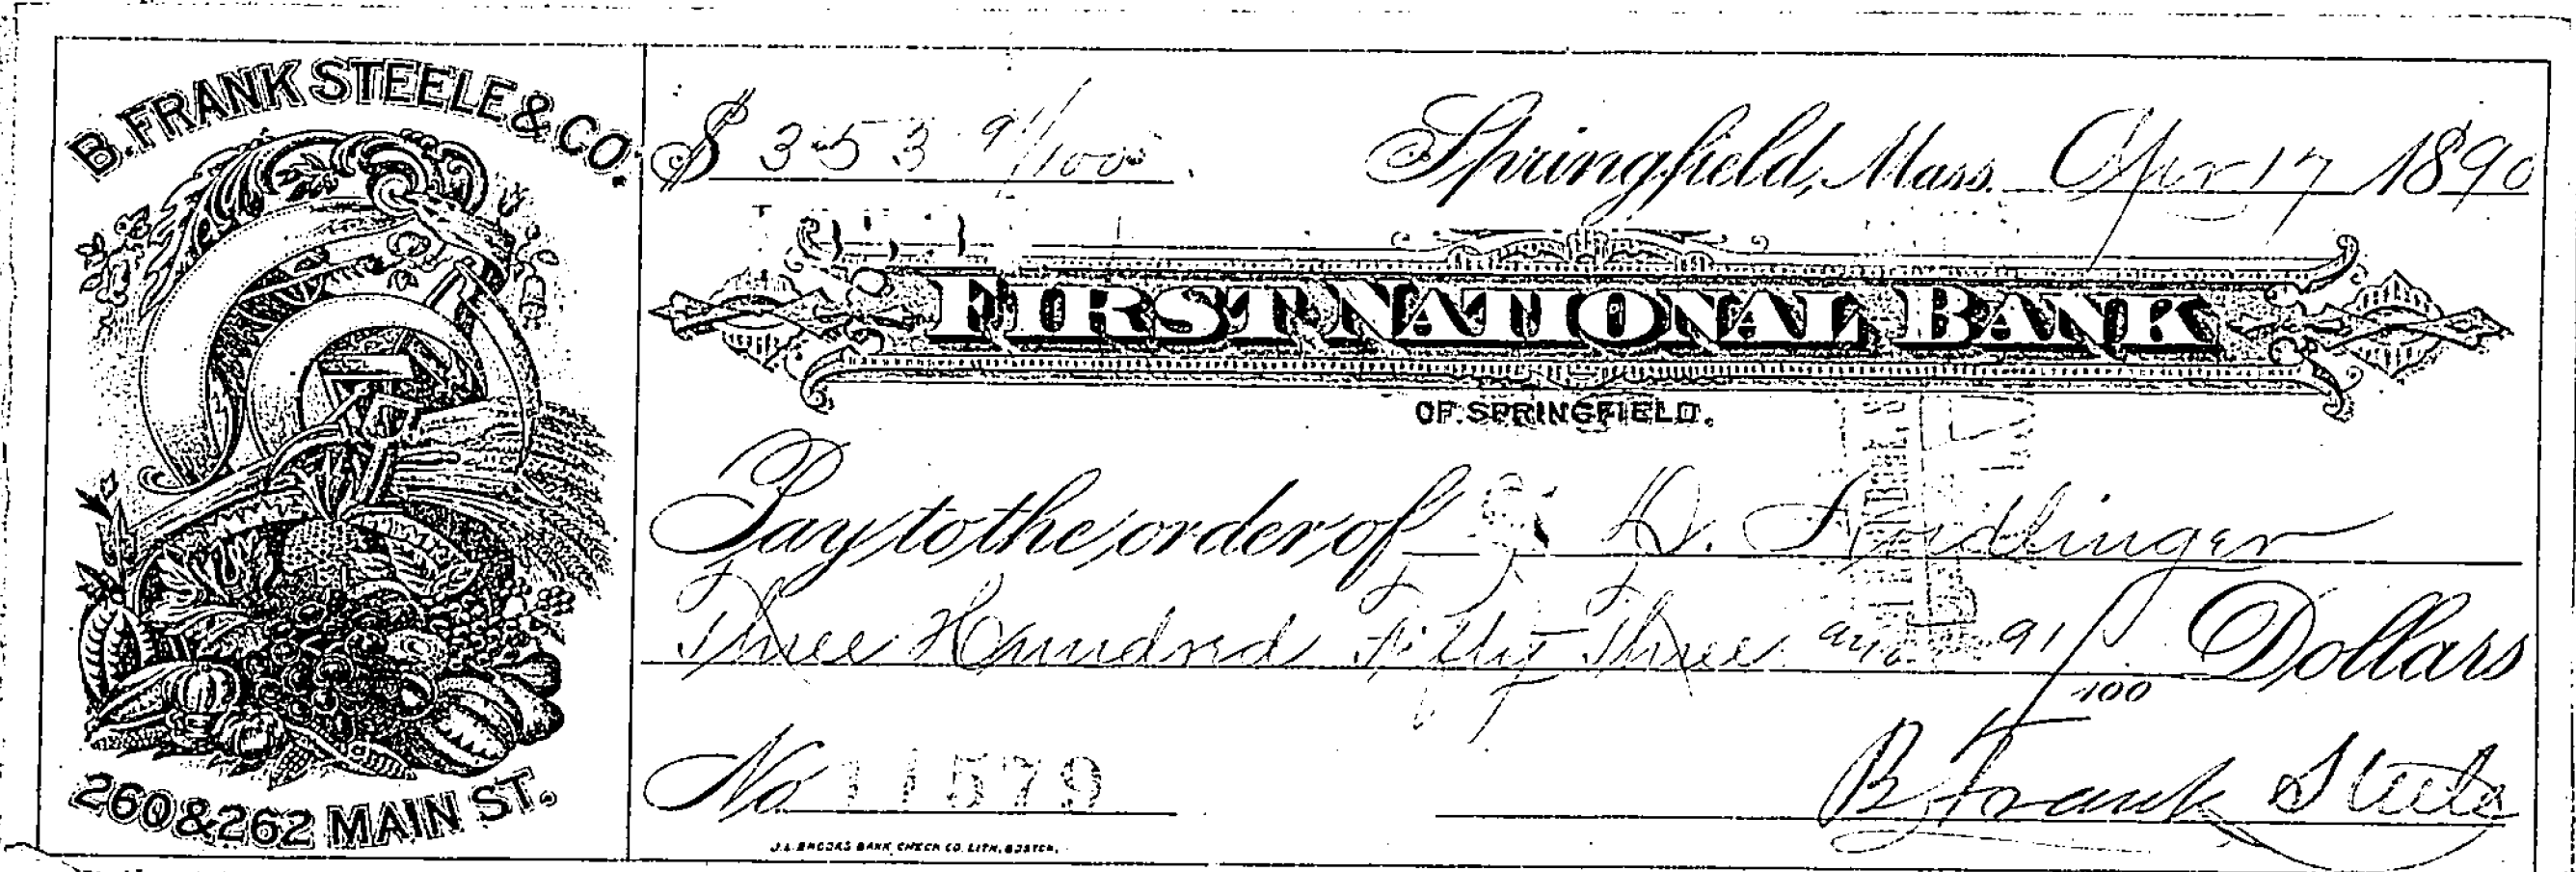 B. FRANK STEELE & CO.
260 & 262 MAIN ST.
$ 353 91/100
Springfield, Mass. Apr 17 1890
FIRST NATIONAL BANK
OF SPRINGFIELD.
Pay to the order of D.
Three Hundred Fifty Three and 91/100 Dollars
No 11579
B Frank Steele
J.L. BROOKS BANK CHECK CO. LITH. BOSTON.